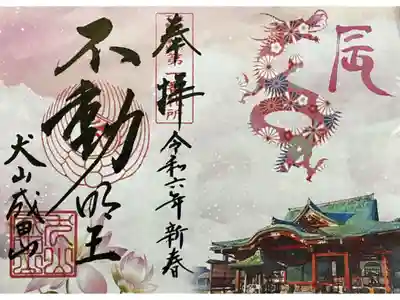 辰
奉拝
令和六年新春
不動明王
犬山成田山